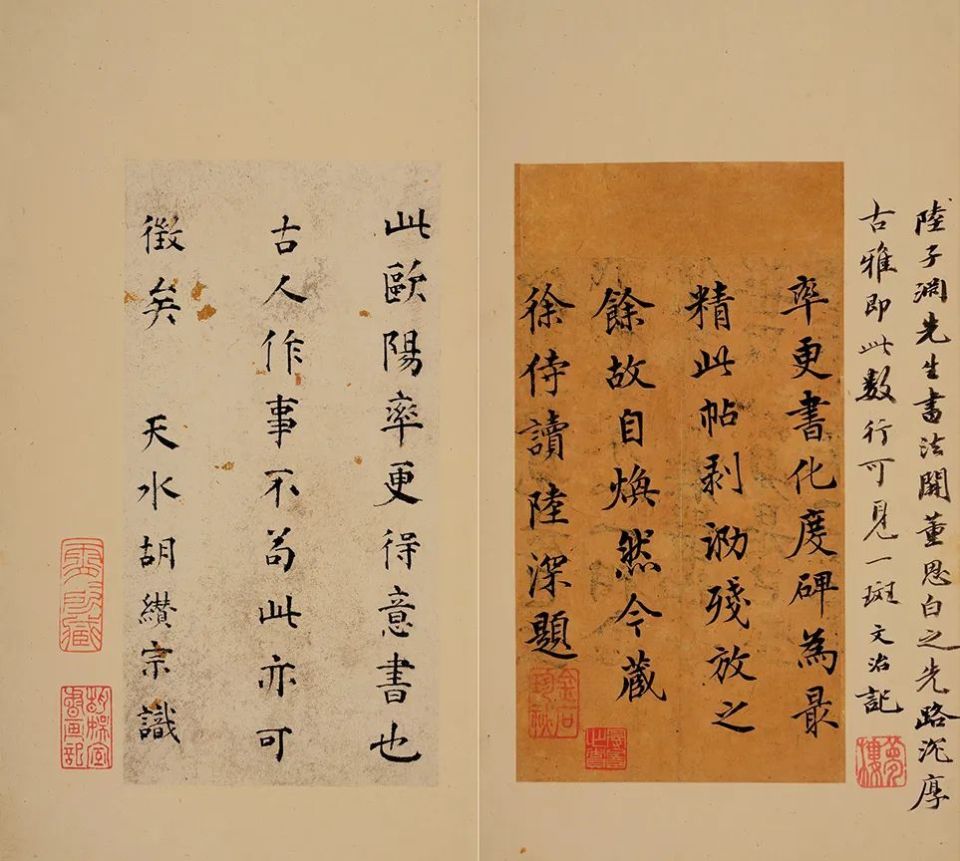 陸子淵先生書法開董思白之先路沉厚
古雅即此数行可見一斑 文治記
率更書化度碑為最
精此帖剥泐殘放之
餘故自煥然今藏
徐侍讀 陸深題
此歐陽率更得意書也
古人作事不苟此亦可
徵矣 天水胡纘宗識